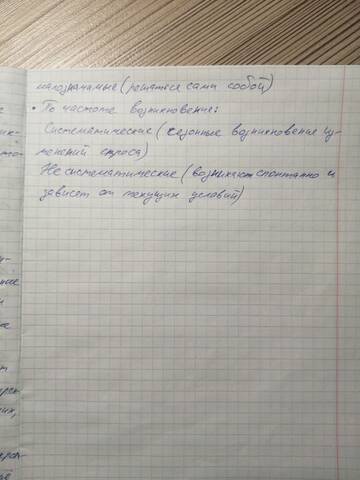 малозначимые (решаться сами собой)
• По частоте возникновение:
Систематические (сезонные возникновение из-
менений спроса)
Не систематические (возникают спонтанно и
зависят от текущих условий)